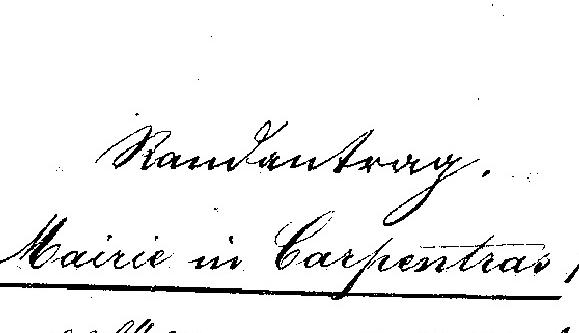 Randantrag.
Mairie in Carpentras,